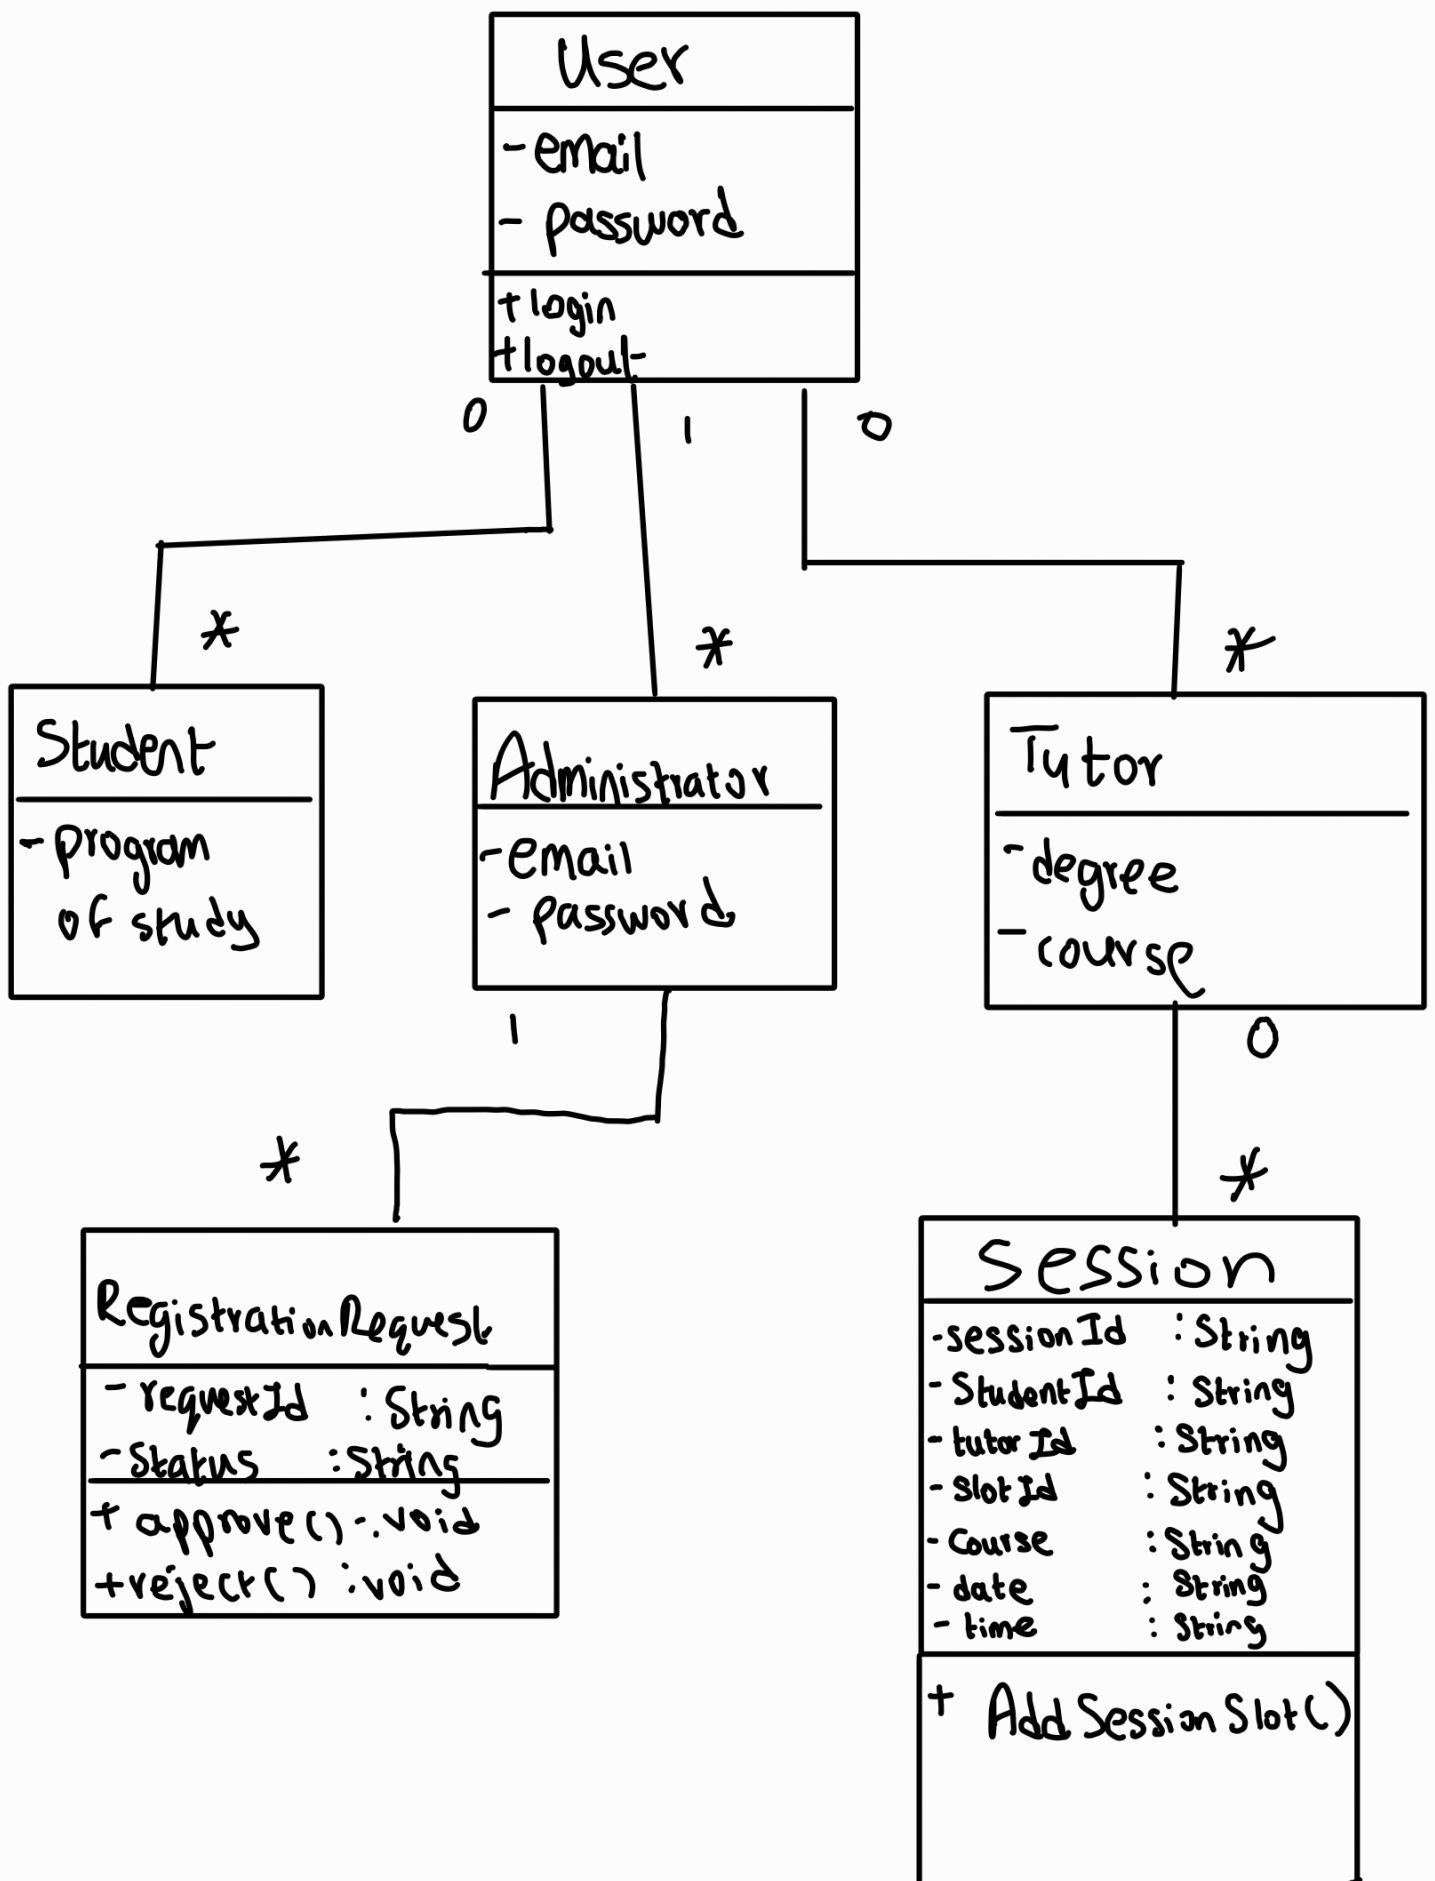 User
- email
- password
+ login
+ logout
0
1
0
*
*
*
Student
- program
of study
Administrator
- email
- password
Tutor
- degree
- course
1
0
*
*
RegistrationRequest
- requestId : String
- Status : String
+ approve() : void
+ reject() : void
Session
- sessionId : String
- StudentId : String
- tutorId : String
- SlotId : String
- Course : String
- date : String
- time : String
+ AddSessionSlot()